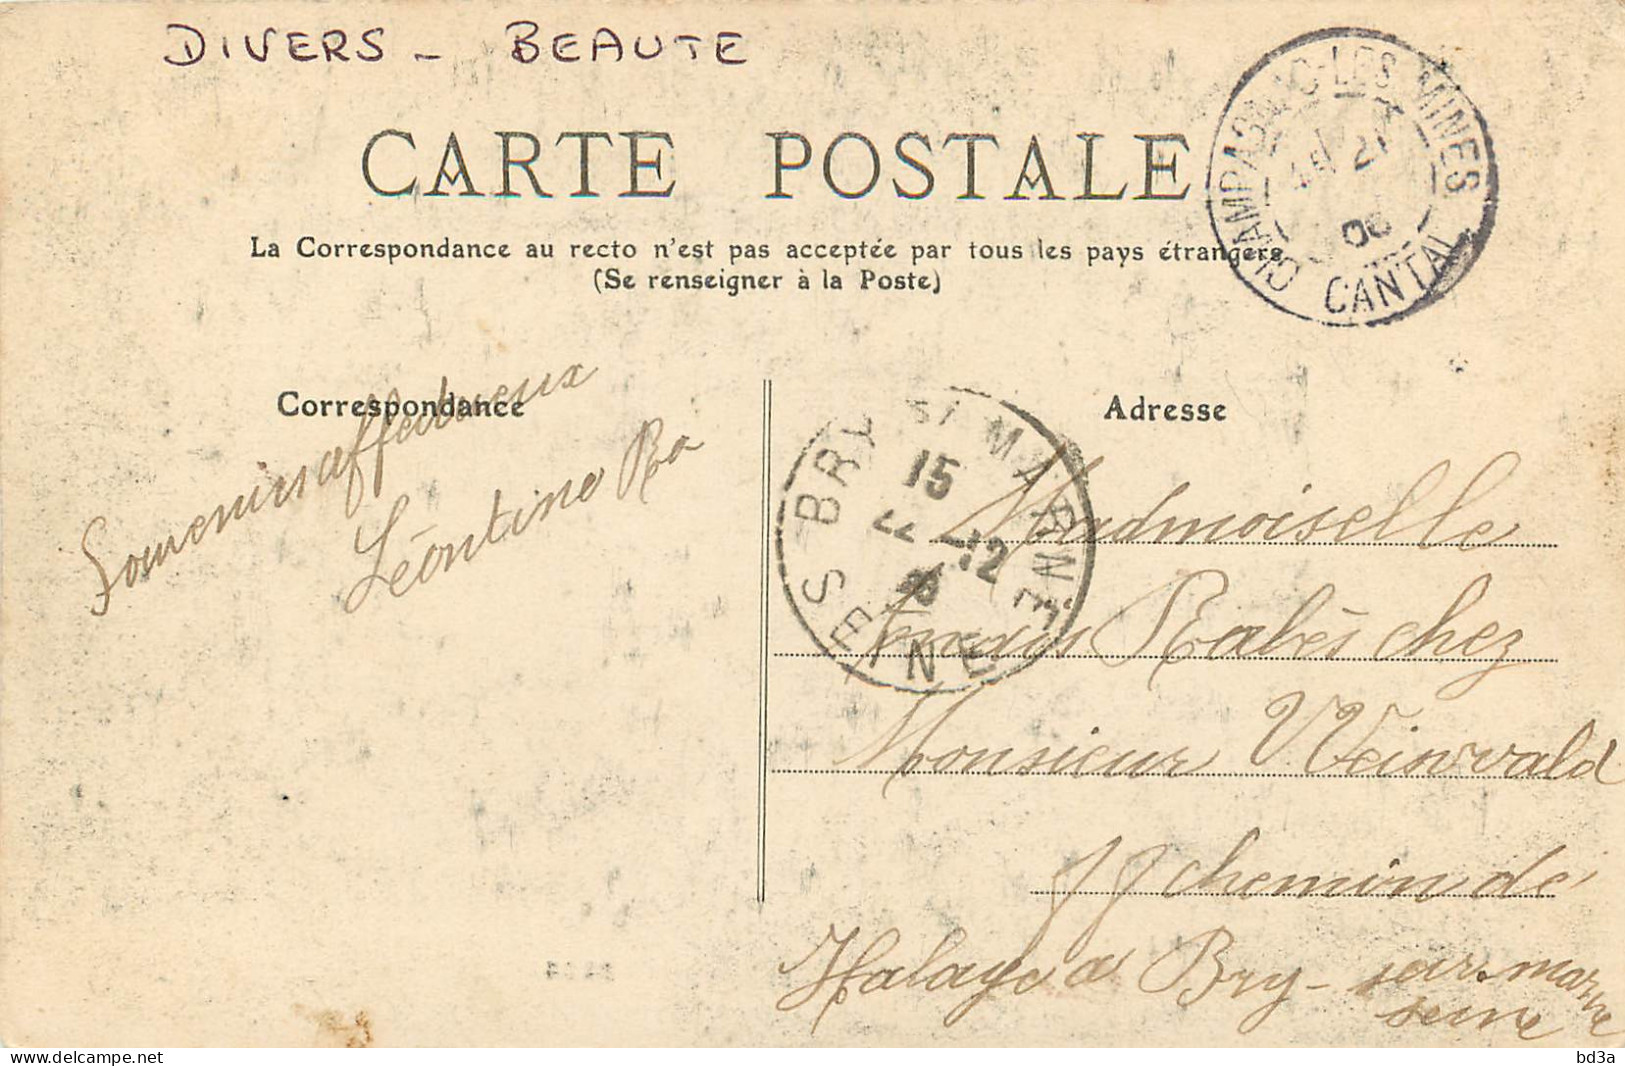 DIVERS - BEAUTE
CARTE POSTALE
La Correspondance au recto n'est pas acceptée par tous les pays étrangers
(Se renseigner à la Poste)
CHAMPAGNAC-LES-MINES
21
06
CANTAL
Correspondance
Adresse
Souvenirs affectueux
Léontine Ra
BRY S/ MARNE
15
22 -12
SEINE
Madmoiselle
Rabès chez
Monsieur Weinvald
chemin de
Halage a Bry-sur-marne
seine
bd3a